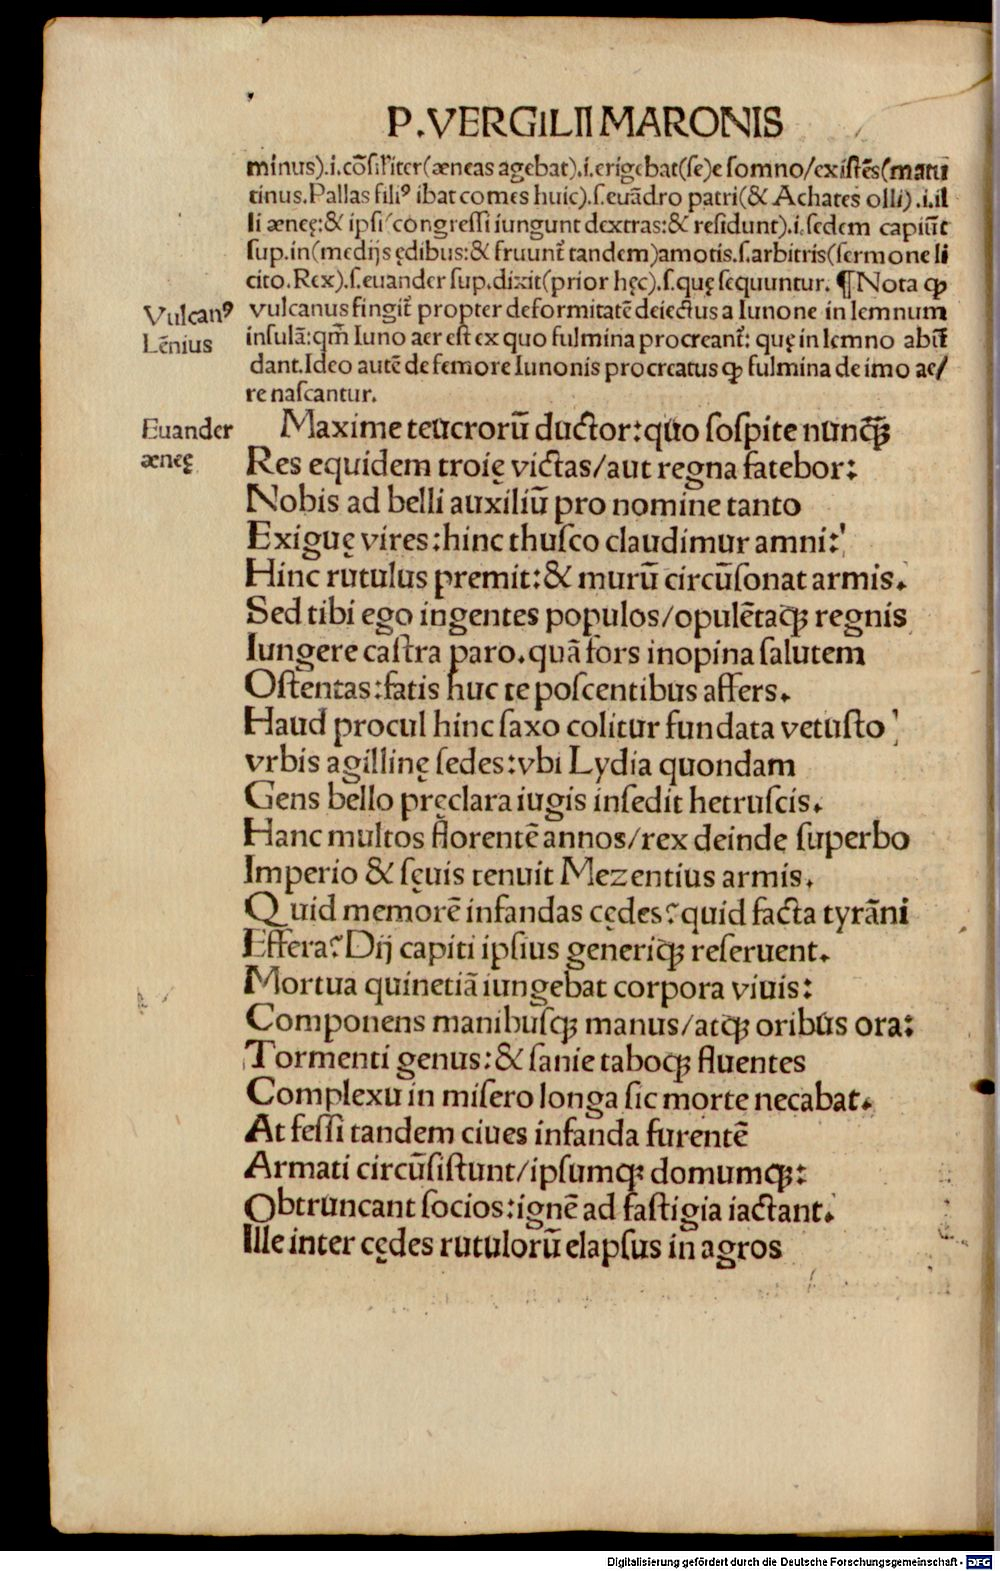 P.VERGILII MARONIS
minus).i.cōsiľiter(æneas agebat).i.erigebat(se)e somno/existēs(matu
tinus.Pallas filiꝰ ibat comes huic).s.euādro patri(& Achates olli).i.il
li æneę:& ipsi(congressi iungunt dextras:& residunt).i.sedem capiūt
sup.in(medijs ędibus:& fruunt᷑ tandem)amotis.s.arbitris(sermone li
cito.Rex).s.euander sup.dixit(prior hęc).s.quę sequuntur. ¶Nota ꝙ
Vulcanꝰ
Lēnius
vulcanus fingit᷑ propter deformitatē deiectus a Iunone in lemnum
insulā:qm̄ Iuno aer est ex quo fulmina procreant᷑: quę in lemno abū
dant.Ideo autē de femore Iunonis procreatus ꝙ fulmina de imo ae/
re nascantur.
Euander
æneę
Maxime teucrorū ductor:quo sospite nunꝙ̄
Res equidem troię victas/aut regna fatebor:
Nobis ad belli auxiliū pro nomine tanto
Exiguę vires:hinc thusco claudimur amni:
Hinc rutulus premit:& murū circūsonat armis.
Sed tibi ego ingentes populos/opulētaqꝫ regnis
Iungere castra paro.quā fors inopina salutem
Ostentas:fatis huc te poscentibus affers.
Haud procul hinc saxo colitur fundata vetusto
vrbis agillinę sedes:vbi Lydia quondam
Gens bello pręclara iugis insedit hetruscis.
Hanc multos florentē annos/rex deinde superbo
Imperio & sęuis tenuit Mezentius armis.
Quid memorē infandas cędes?quid facta tyrāni
Effera?Dij capiti ipsius generiqꝫ reseruent.
Mortua quinetiā iungebat corpora viuis:
Componens manibusqꝫ manus/atqꝫ oribus ora:
Tormenti genus:& sanie taboqꝫ fluentes
Complexu in misero longa sic morte necabat.
At fessi tandem ciues infanda furentē
Armati circūsistunt/ipsumqꝫ domumqꝫ:
Obtruncant socios:ignē ad fastigia iactant.
Ille inter cędes rutulorū elapsus in agros
Digitalisierung gefördert durch die Deutsche Forschungsgemeinschaft - DFG